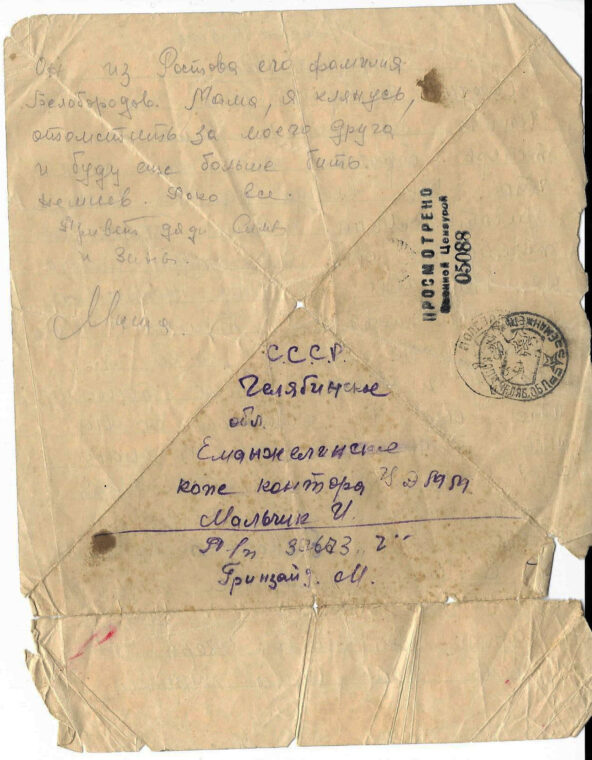 Он из Ростова его фамилия
Белобородов. Мама, я клянусь,
отомстить за моего друга
и буду еще больше бить
немцев. Пока все.
Привет дяди Симы
и Зины.
Миша.
ПРОСМОТРЕНО
Военной Цензурой
05088
С.С.С.Р.
Челябинское
обл.
Еманжелинское
контора
Мальчик И.
П/п 33673
Гринзайд. М.